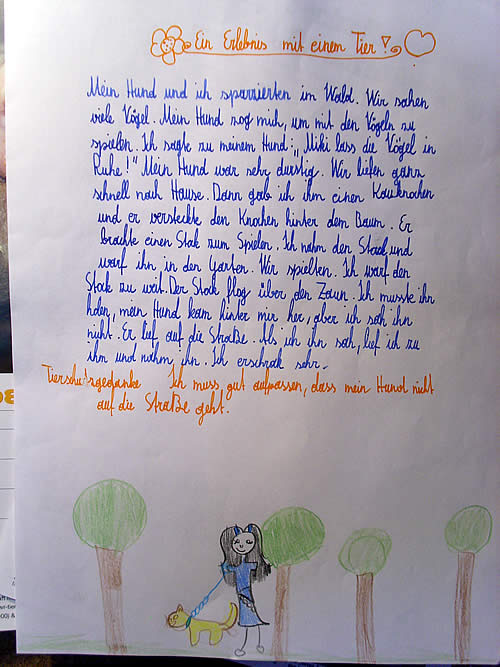 Ein Erlebnis mit einem Tier!
Mein Hund und ich sparrierten im Wald. Wir sahen
viele Vögel. Mein Hund zog mich, um mit den Vögeln zu
spielen. Ich sagte zu meinem Hund: „Miki lass die Vögel in
Ruhe!" Mein Hund war sehr durstig. Wir liefen ganz
schnell nach Hause. Dann gab ich ihm einen Kauknochen
und er versteckte den Knochen hinter dem Baum. Er
brachte einen Stok zum Spielen. Ich nahm den Stock und
warf ihn in den Garten. Wir spielten. Ich warf den
Stock zu weit. Der Stock flog über den Zaun. Ich musste ihn
holen, mein Hund kam hinter mir her, aber ich sah ihn
nicht. Er lief auf die Straße. Als ich ihn sah, lief ich zu
ihm und nahm ihn. Ich erschrak sehr.
Tierschutzgedanke Ich muss gut aufpassen, dass mein Hund nicht
auf die Straße geht.